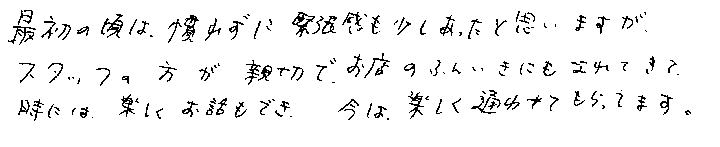 最初の頃は、慣れずに緊張感も少しあったと思いますが、
スタッフの方が親切で、お店のふんいきにもなれてきて、
時には、楽しくお話もでき、今は、楽しく通わせてもらってます。